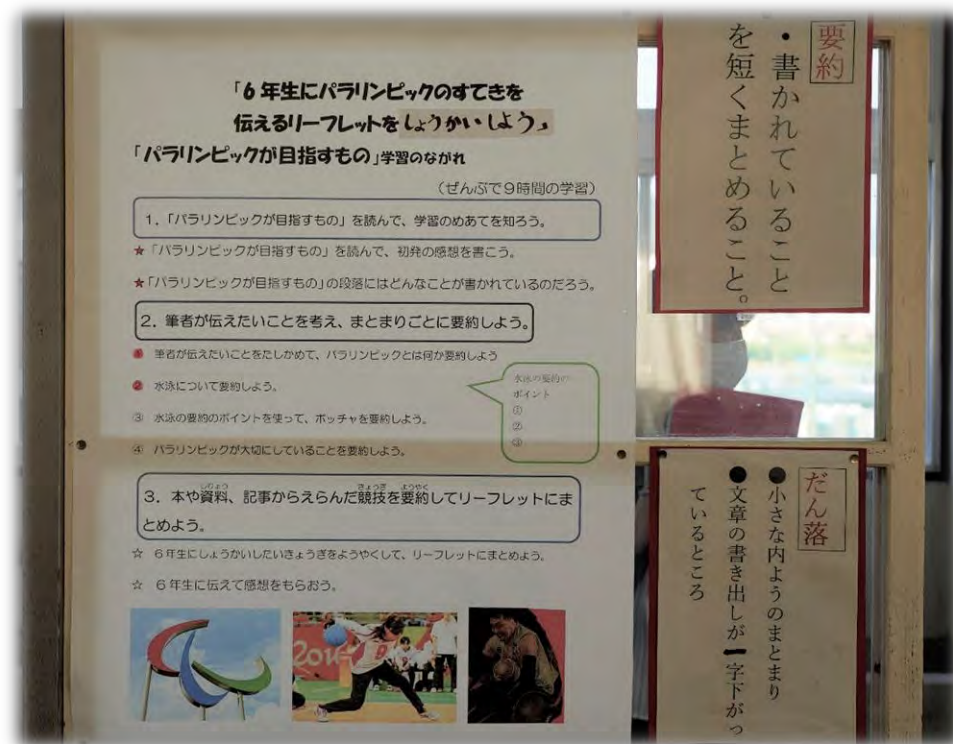 「6年生にパラリンピックのすてきを
伝えるリーフレットをしょうかいしよう」
「パラリンピックが目指すもの」学習のながれ
（ぜんぶで9時間の学習）
1．「パラリンピックが目指すもの」を読んで、学習のめあてを知ろう。
★「パラリンピックが目指すもの」を読んで、初発の感想を書こう。
★「パラリンピックが目指すもの」の段落にはどんなことが書かれているのだろう。
2．筆者が伝えたいことを考え、まとまりごとに要約しよう。
① 筆者が伝えたいことをたしかめて、パラリンピックとは何か要約しよう
② 水泳について要約しよう。
③ 水泳の要約のポイントを使って、ボッチャを要約しよう。
④ パラリンピックが大切にしていることを要約しよう。
水泳の要約の
ポイント
①
②
③
3．本や資料、記事からえらんだ競技を要約してリーフレットにま
とめよう。
☆ 6年生にしょうかいしたいきょうぎをようやくして、リーフレットにまとめよう。
☆ 6年生に伝えて感想をもらおう。
要約
・書かれていること
を短くまとめること。
だん落
●小さな内ようのまとまり
●文章の書き出しが一字下がっ
ているところ